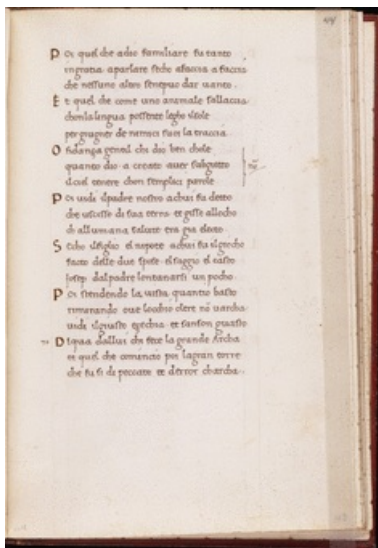 Poi quel che adio familiare fu tanto
ingratia aparlare seco afaccia a faccia
che nessuno altro senepuo dar uanto
Et quel che come uno animale sallaccia
chonla lingua possente legho ilsole
per giugner de nimici suoi la traccia
O fidanza gentil chi dio ben chole
quanto dio a creato auer subgietto
ilciel tenere chon semplici parole
Poi uidi ilpadre nostro achui fu detto
che uscisse di sua terra et gisse allocho
ch allumana salute era gia eletto
Secho ilfiglio el nipote achui fu ilgiocho
facto delle due spose el saggio el casto
iosep dalpadre lontanarsi un pocho
Poi stendendo la uista quantio basto
rimirando oue locchio oltre nō uarcha
uidi ilgiusto ezechia et sanson guasto
Diqua dallui chi fece la grande Archa
et quel che comincio poi lagran torre
che fu si di peccato et derror charcha